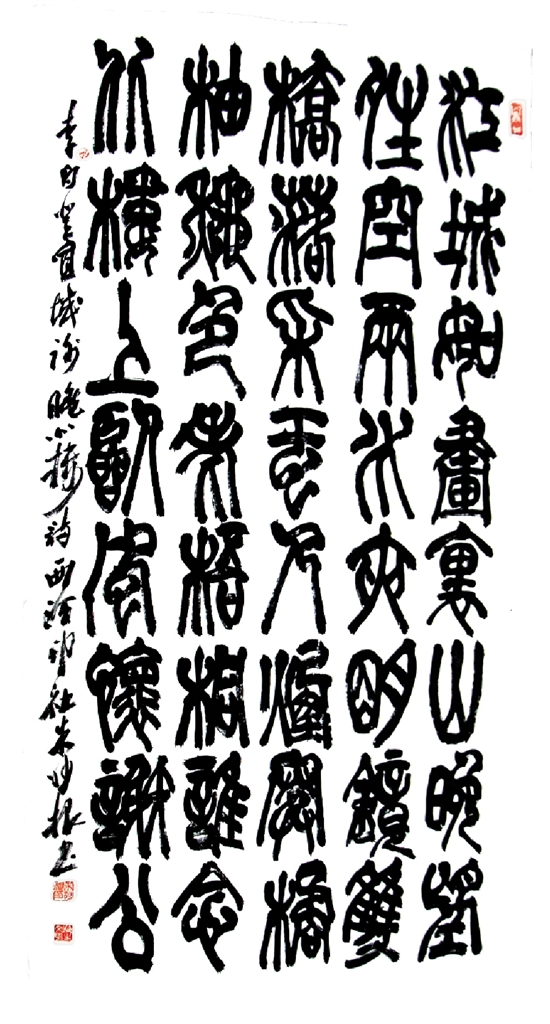 江城如畫裏山晚望
晴空兩水夾明鏡雙
橋落采虹人煙寒橘
柚秋色老梧桐誰念
北樓上臨風懷謝公
李白登宣城謝朓北樓詩西泠印社朱妙根書